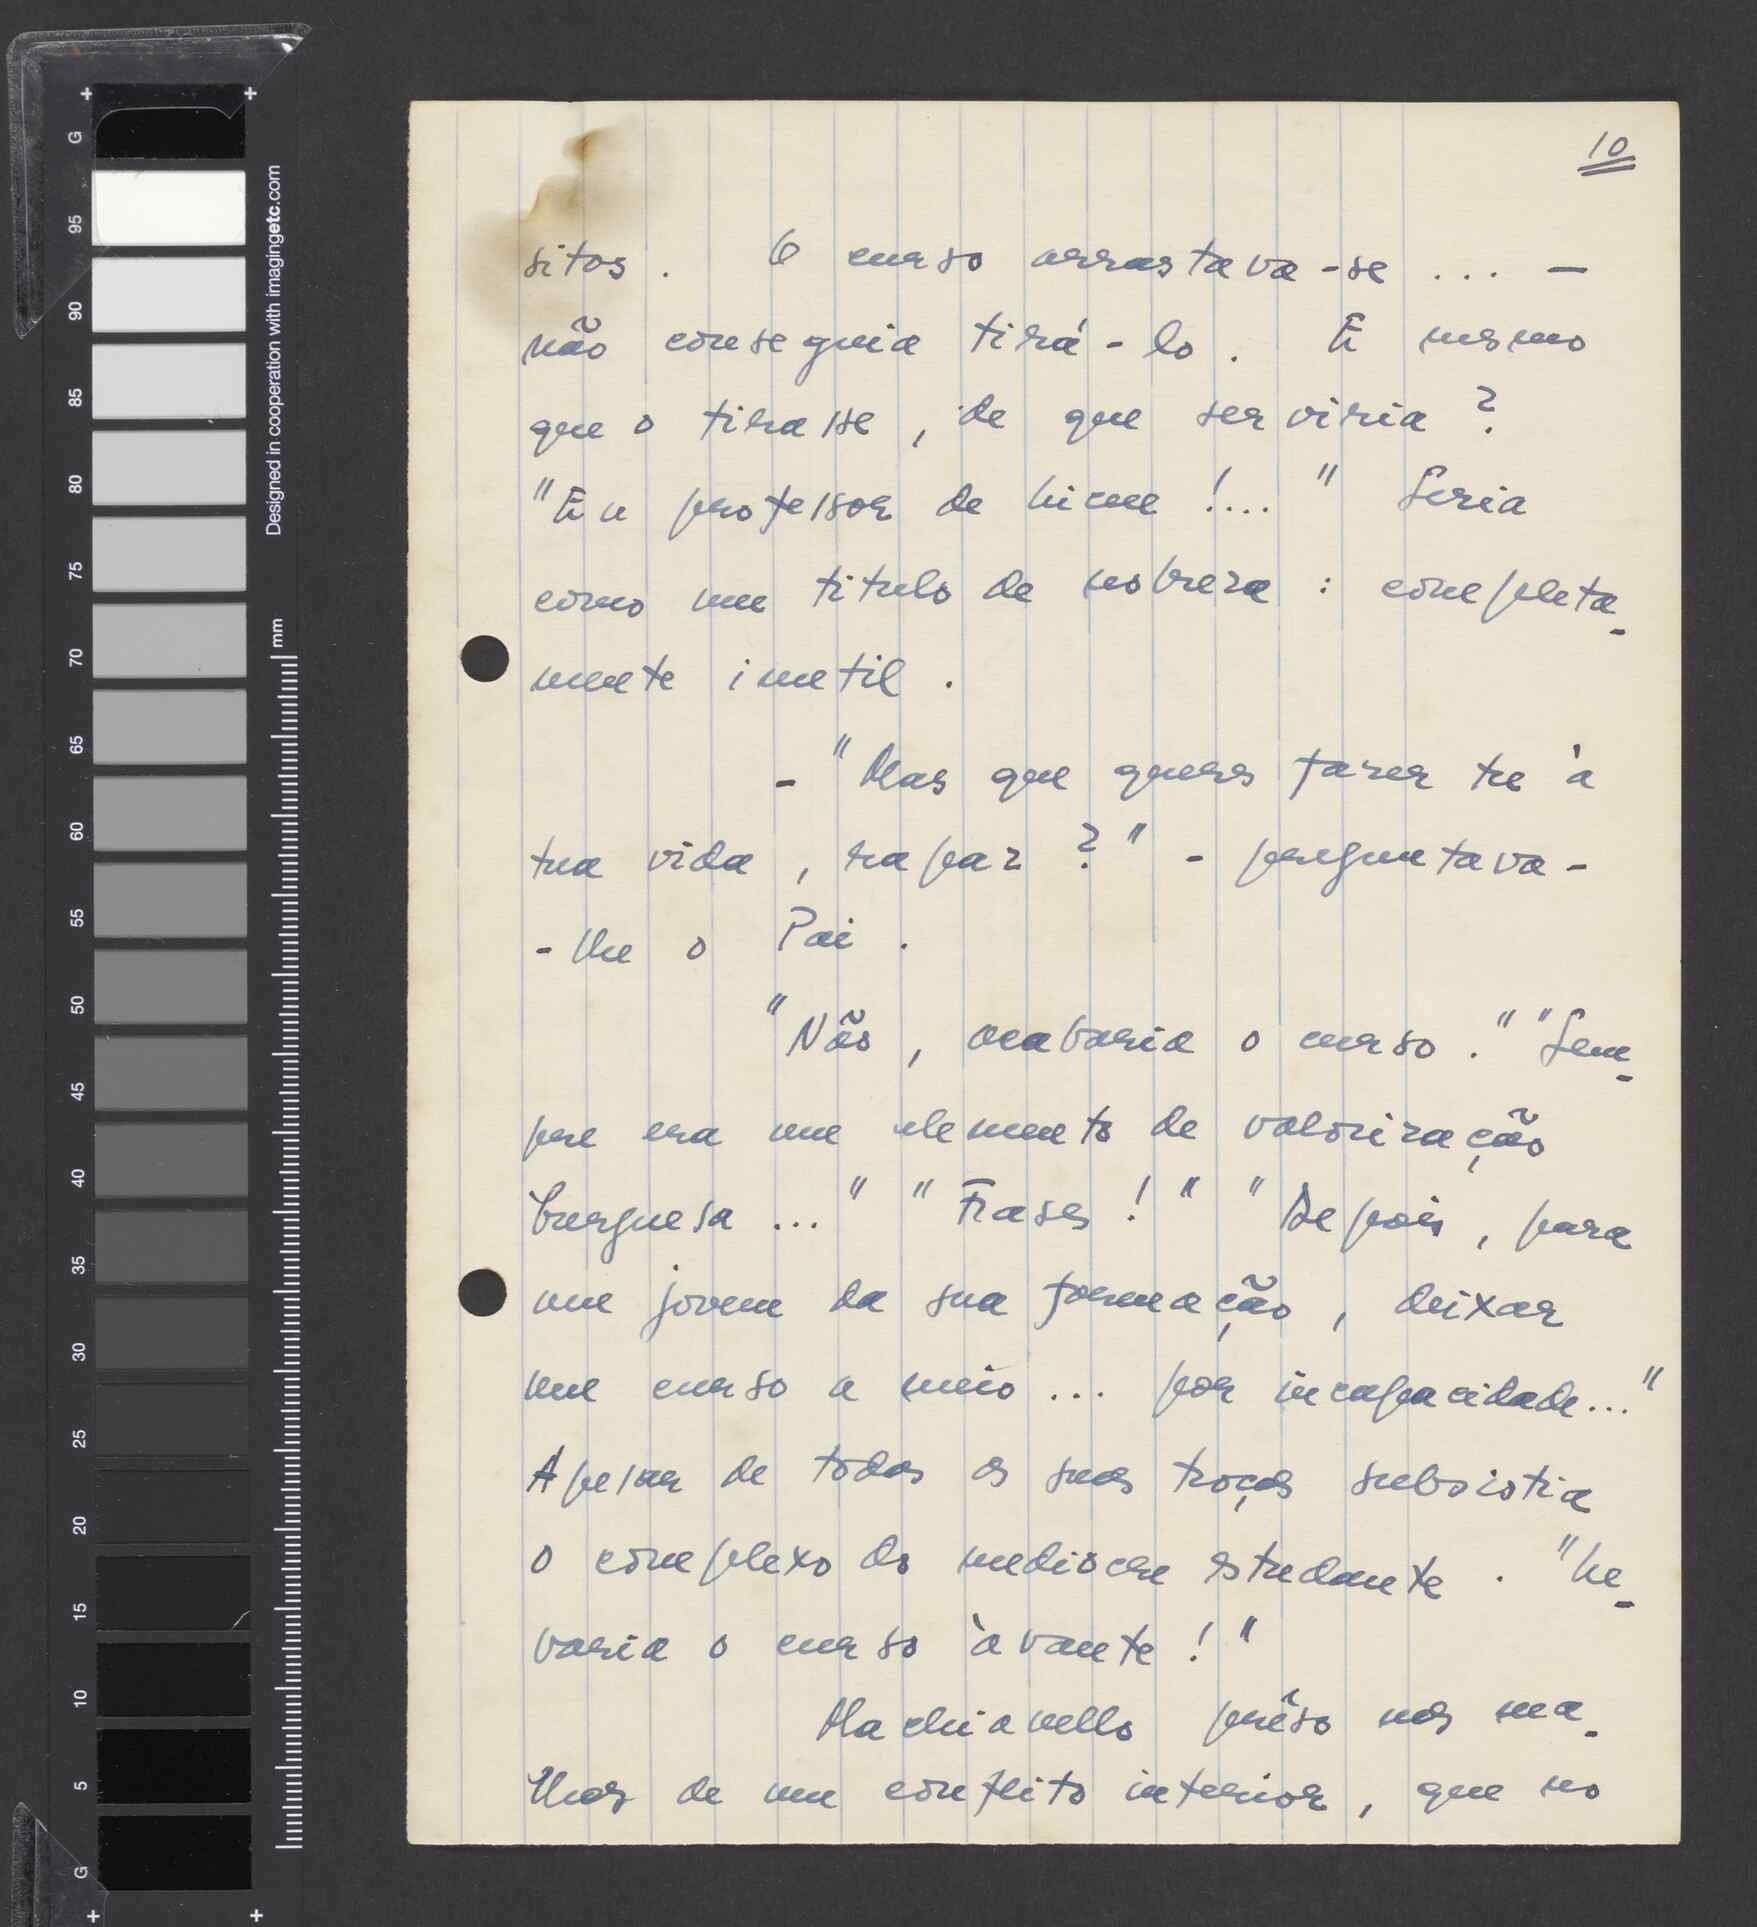 10
sitos. O curso arrastava-se ... —
não conseguia tirá-lo. E mesmo
que o tirasse, de que serviria?
"Eu professor de liceu!..." Seria
como um titulo de nobreza: completa-
mente inutil.
- "Mas que queres fazer tu à
tua vida, rapaz?" - perguntava-
-lhe o Pai.
"Não, acabaria o curso." "Sem-
pre era um elemento de valorização
burguesa ..." "Frases!" "Depois, para
um jovem da sua formação, deixar
um curso a meio ... por incapacidade..."
Apesar de todas as suas troças subsistia
o complexo do mediocre estudante. "Le-
varia o curso àvante!"
Machiavello prêso nas ma-
lhas de um conflito interior, que no
G
95
90
85
80
75
70
65
60
55
50
45
40
35
30
25
20
15
10
5
G
Designed in cooperation with imagingetc.com
mm